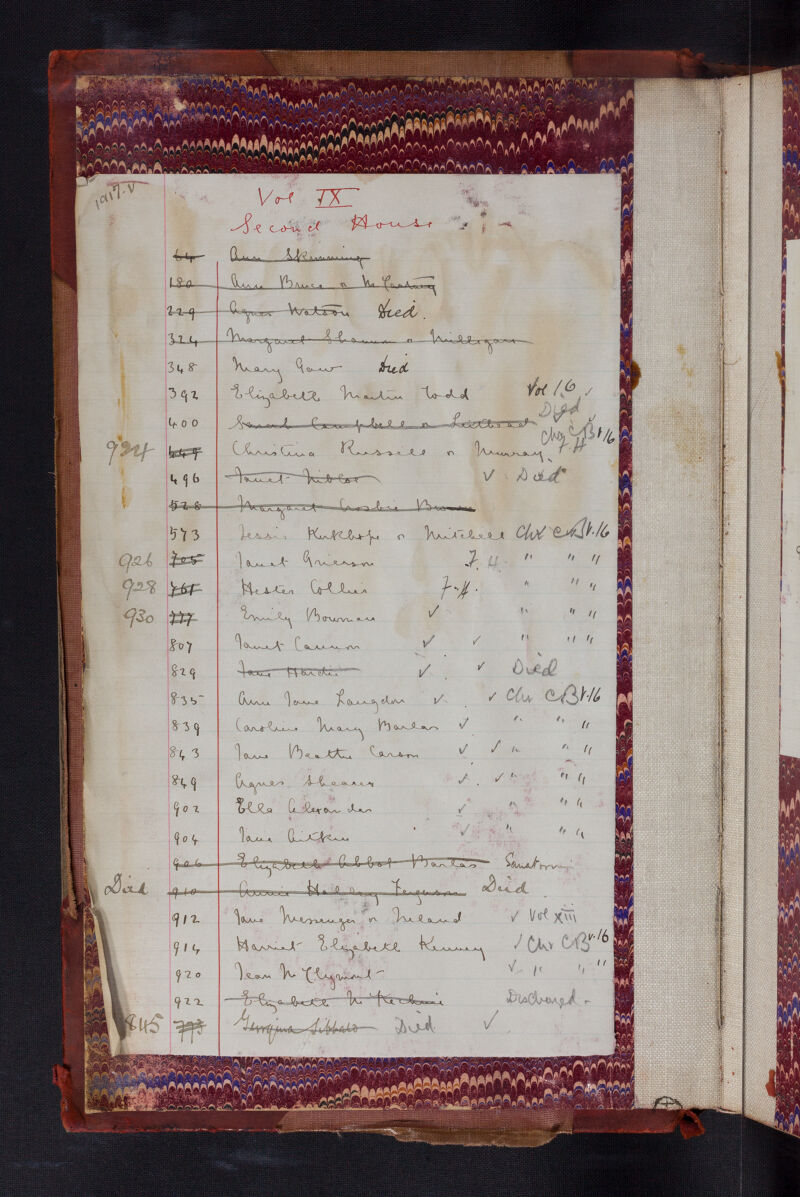 1917.V
Vol IX
Second House
64 Ann Skimming
180 Ann Bruce or
229 Agnes Watson Died.
324 Margaret Shannon or Milligan
348 Mary Gaw Died
392 Elizabeth Martin Todd Vol 16 ✓
400 Sarah Campbell or Died
924 449 Christina Russell or Murray. F H Chr CB V 16
496 Janet Nibloe ✓ Died
528 Margaret Crosbie
573 Jessie Kirkhope or Mitchell Chr CB V.16
926 705 Janet Grierson F. H. " " "
928 761 Hester Collins F. H. " " "
930 777 Emily Bowman ✓ " " "
807 Janet Cannon ✓ ✓ " " "
829 Jane Hardie ✓ ✓ Died
835 Annie Jane Langdon ✓ ✓ Chr CB V.16
839 Caroline Mary Barlas ✓ " " "
843 Jane Beattie Carson ✓ ✓ " " "
849 Agnes Shearer ✓ ✓ " " "
902 Ella Alexander ✓ " " "
904 Jane Aitken ✓ " " "
906 Elizabeth Abbot Barlas Sanatorm
Died 910 Annie Halliday Ferguson Died
912 Jane Messenger or Ireland ✓ Vol XIII
914 Harriet Elizabeth Kenney ✓ Chr CB V.16
920 Jean McClymont ✓ " " "
922 Elizabeth McKechnie Discharged.
845 793 Georgina Sibbald Died ✓